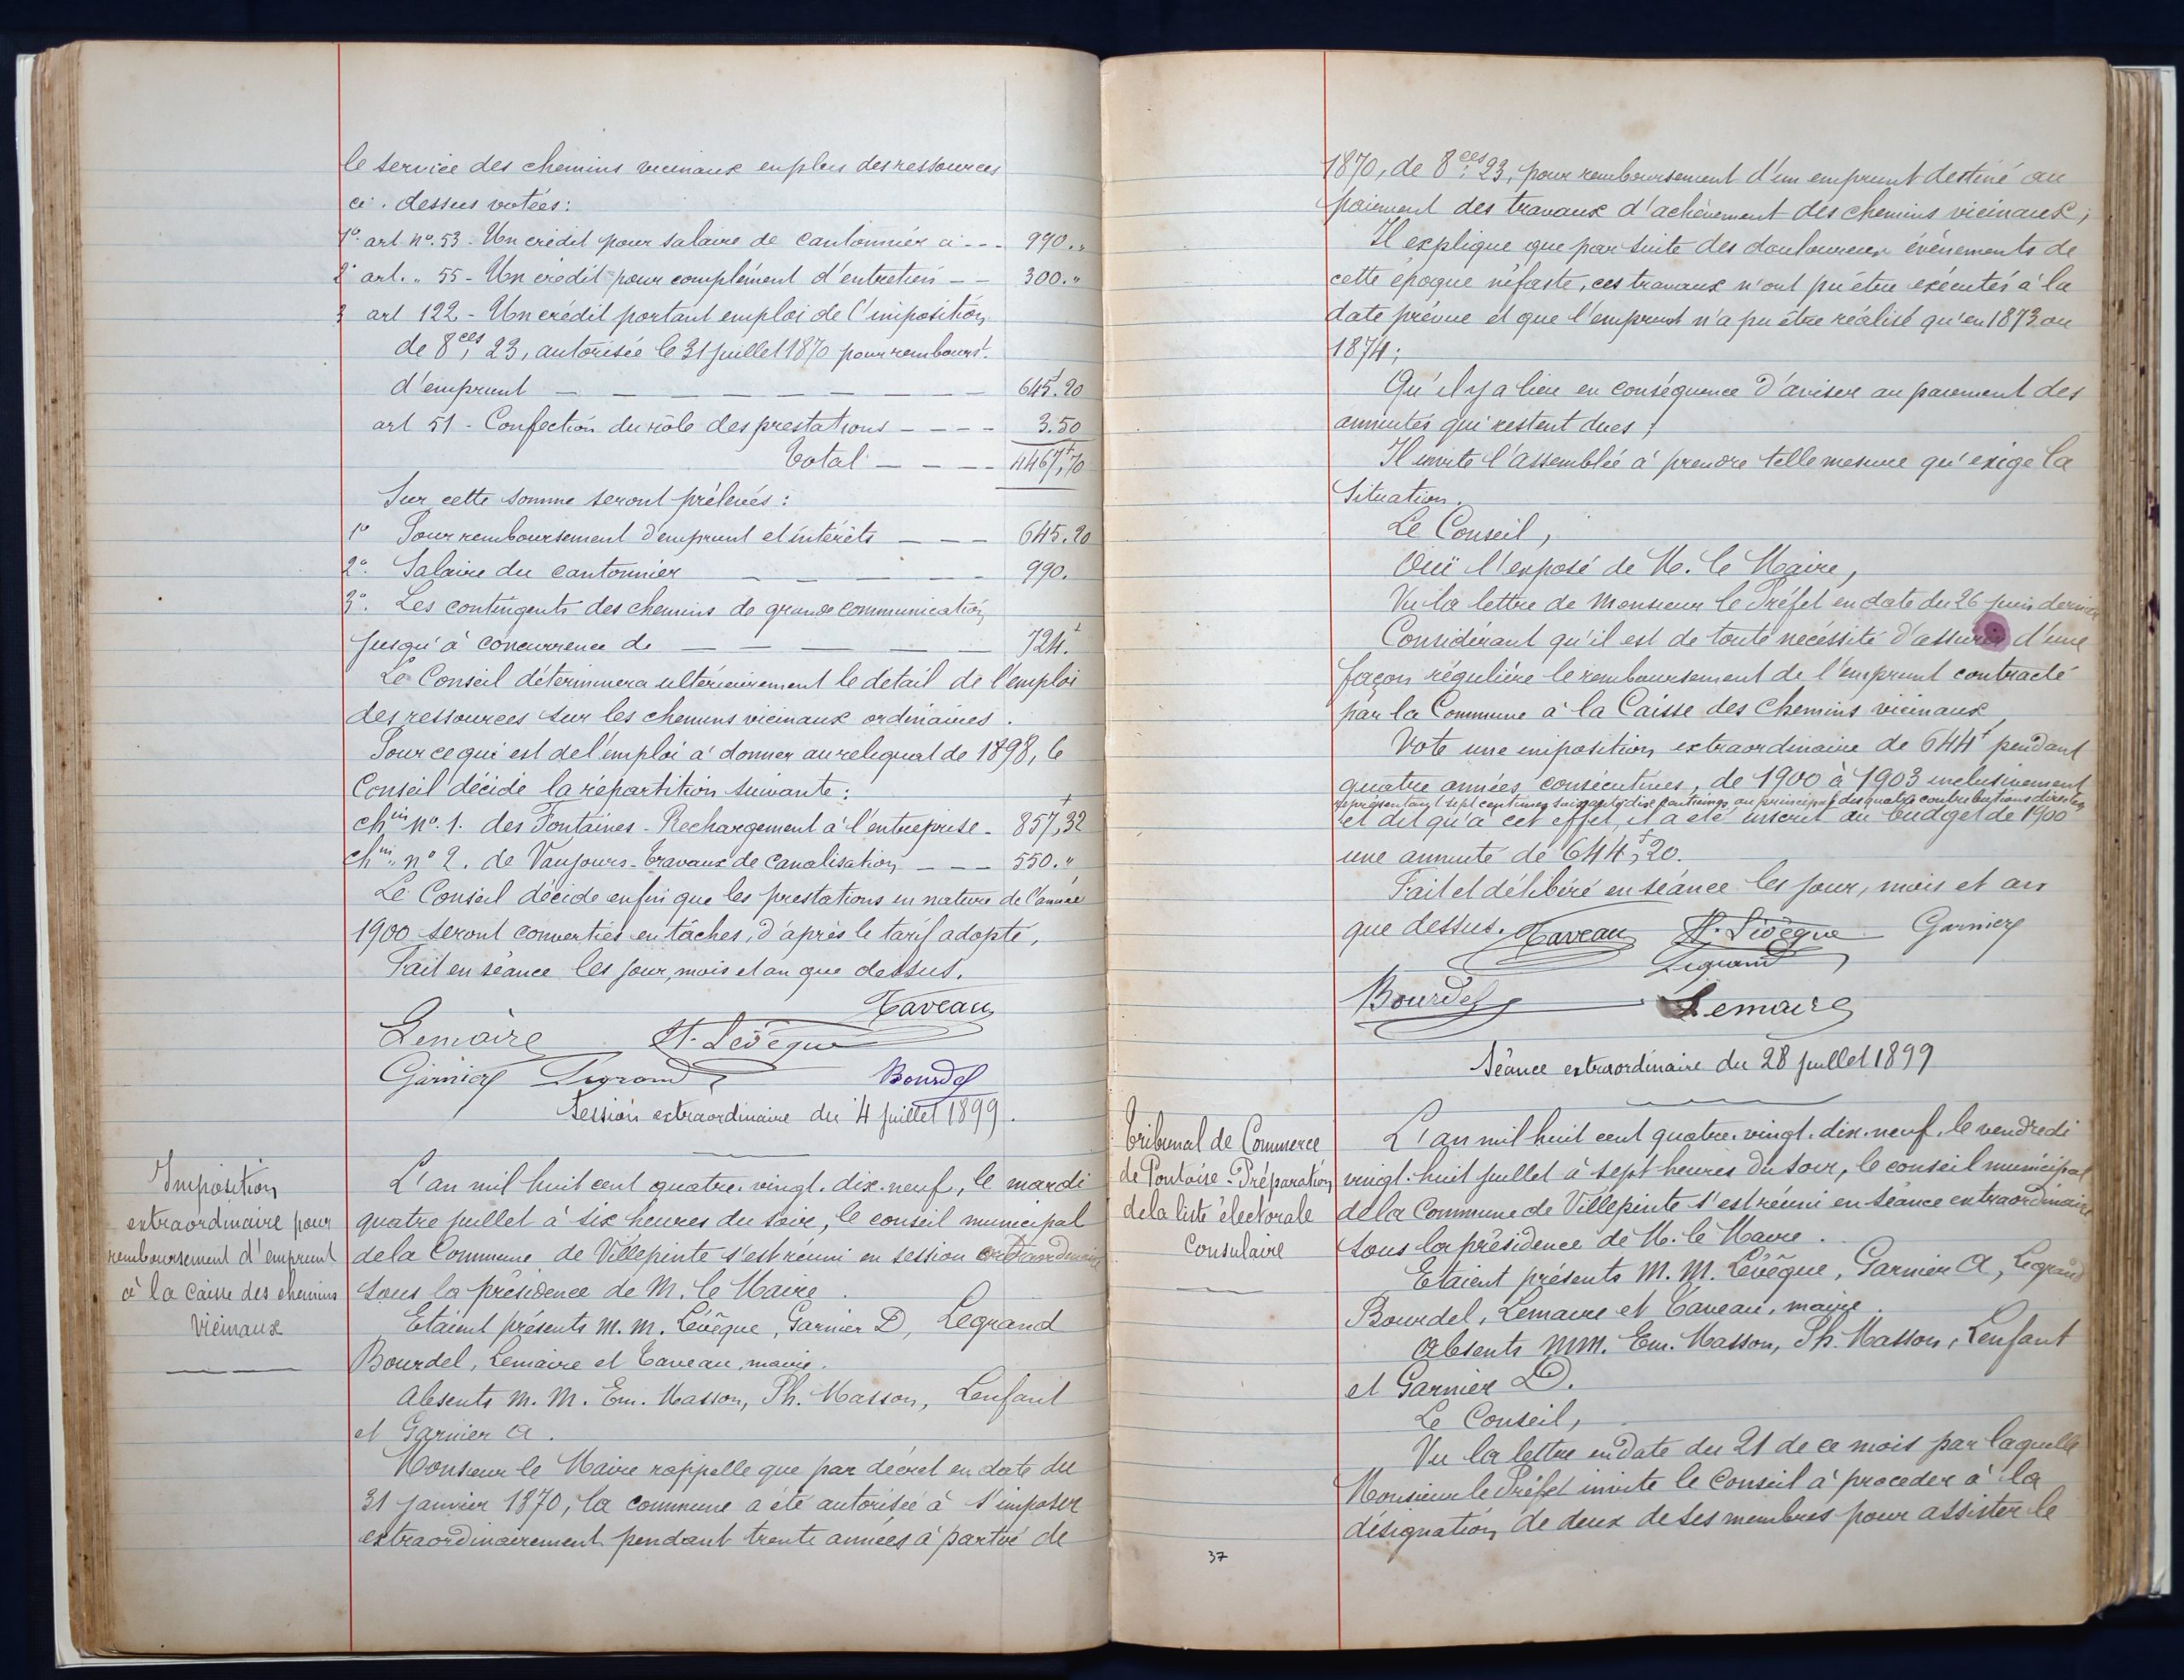 le service des chemins vicinaux en plus des ressources
ci-dessus votées:
1° art. n° 53 - Un crédit pour salaire de cantonnier à - - - 990."
2° art. " 55 - Un crédit pour complément d'entretien - - 300."
3 art 122 - Un crédit portant emploi de l'imposition
de 8ces, 23, autorisée le 31 juillet 1870 pour rembourst.
d'emprunt - - - - - - - - - 645f.20
art 51 - Confection du rôle des prestations - - - - 3.50
Total - - - - 4467f,70
Sur cette somme seront prélevés:
1° Pour remboursement d'emprunt et intérêts - - - 645.20
2° Salaire du cantonnier - - - - - 990.
3° Les contingents des chemins de grande communication
jusqu'à concurrence de - - - - - 724f.
Le Conseil déterminera ultérieurement le détail de l'emploi
des ressources sur les chemins vicinaux ordinaires.
Pour ce qui est de l'emploi à donner au reliquat de 1898, le
Conseil décide la répartition suivante:
chin n° 1. des Fontaines - Rechargement à l'entreprise - 857f,32
chin n° 2. de Vaujours - travaux de canalisation - - - 550."
Le Conseil décide enfin que les prestations en nature de l'année
1900 seront converties en tâches, d'après le tarif adopté,
Fait en séance les jour, mois et an que dessus.
Taveau
Lemaire H. Levêque
Garnier Legrand Bourdel
Session extraordinaire du 4 juillet 1899.
Imposition
extraordinaire pour
remboursement d'emprunt
à la Caisse des chemins
vicinaux
L'an mil huit cent quatre-vingt-dix-neuf, le mardi
quatre juillet à six heures du soir, le conseil municipal
de la Commune de Villepinte s'est réuni en session extraordinaire
sous la présidence de M. le Maire.
Etaient présents M. M. Lévêque, Garnier D, Legrand
Bourdel, Lemaire et Taveau, maire.
Absents M. M. Em. Masson, Ph. Masson, Lenfant
et Garnier A.
Monsieur le Maire rappelle que par décret en date du
31 janvier 1870, la commune a été autorisée à s'imposer
extraordinairement pendant trente années à partir de
1870, de 8ces, 23, pour remboursement d'un emprunt destiné au
paiement des travaux d'achèvement des chemins vicinaux;
Il explique que par suite des douloureux événements de
cette époque néfaste, ces travaux n'ont pu être exécutés à la
date prévue et que l'emprunt n'a pu être réalisé qu'en 1873 ou
1874;
Qu'il y a lieu en conséquence d'aviser au paiement des
annuités qui restent dues;
Il invite l'assemblée à prendre telle mesure qu'exige la
situation.
Le Conseil,
Ouï l'exposé de M. le Maire,
Vu la lettre de Monsieur le Préfet en date du 26 juin dernier
Considérant qu'il est de toute nécessité d'assurer d'une
façon régulière le remboursement de l'emprunt contracté
par la Commune à la Caisse des chemins vicinaux,
Vote une imposition extraordinaire de 644f pendant
quatre années consécutives, de 1900 à 1903 inclusivement
représentant sept centimes soixante dix centièmes au principal des quatre contributions directes
et dit qu'à cet effet, il a été inscrit au budget de 1900
une annuité de 644f,20.
Fait et délibéré en séance les jour, mois et an
que dessus. Taveau H. Livêque Garnier
Legrand
Bourdel Lemaire
Séance extraordinaire du 28 juillet 1899
Tribunal de Commerce
de Pontoise - Préparation
de la liste électorale
Consulaire
L'an mil huit cent quatre-vingt-dix-neuf, le vendredi
vingt-huit juillet à sept heures du soir, le conseil municipal
de la Commune de Villepinte s'est réuni en séance extraordinaire
sous la présidence de M. le Maire.
Etaient présents M. M. Lévêque, Garnier A, Legrand
Bourdel, Lemaire et Taveau, maire.
Absents MM. Em. Masson, Ph. Masson, Lenfant
et Garnier D.
Le Conseil,
Vu la lettre en date du 21 de ce mois par laquelle
Monsieur le Préfet invite le Conseil à procéder à la
désignation de deux de ses membres pour assister le
37